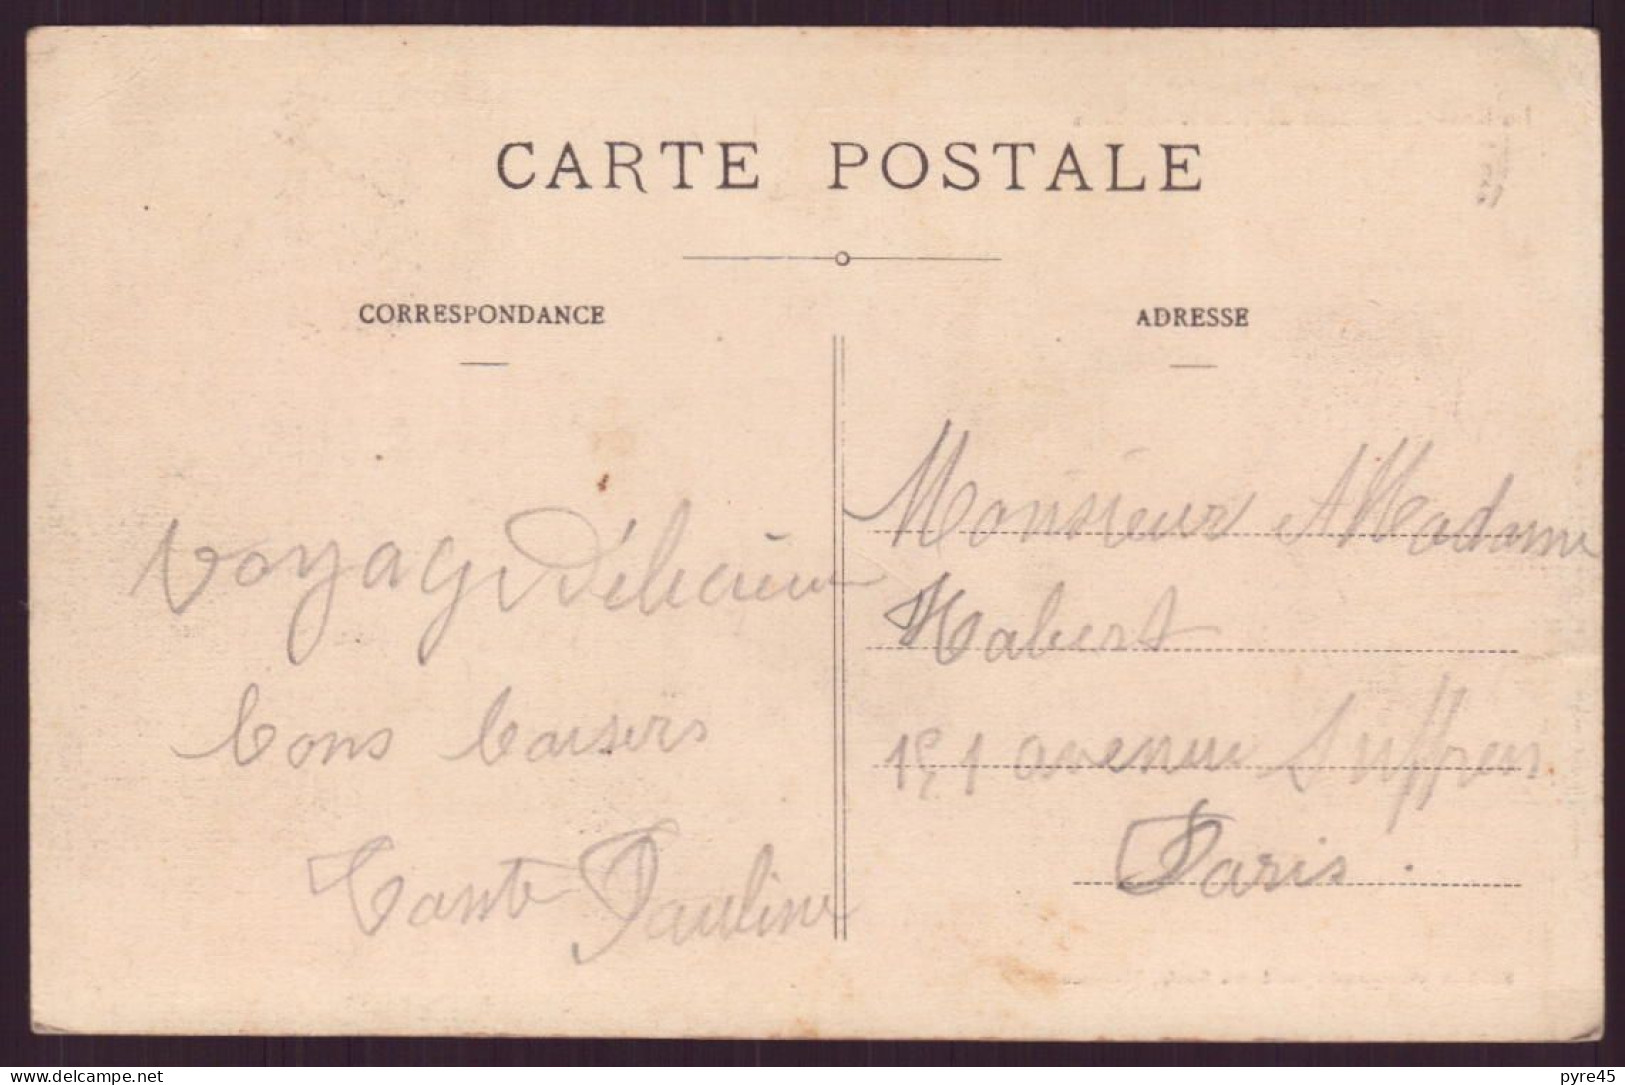 CARTE POSTALE
CORRESPONDANCE
ADRESSE
Voyage Délicieux
bons baisers
Tante Pauline
Monsieur Madame
Habert
151 avenue Suffren
Paris.
www.delcampe.net
pyre45